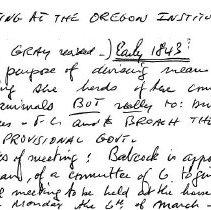 ING AT THE OREGON INSTITU
GRAY revised —) Early 1843?
purpose of devising mean
ing the herds of the com
animals BUT really to: bu
es - F.C. and & BROACH THE
PROVISIONAL GOVT.
es of meeting: Babcock is appo
an, of a committee of 6 to giv
l meeting to be held at the house
Monday the 6th of March -